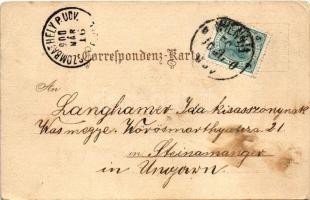 SZOMBATHELY P.UDV.
900
MÁR
16
Correspondenz-Karte
An
Langhamer Ida kisasszonynak
Vasmegye Vörösmarthy utcza 21
in Steinamanger
in Ungarn